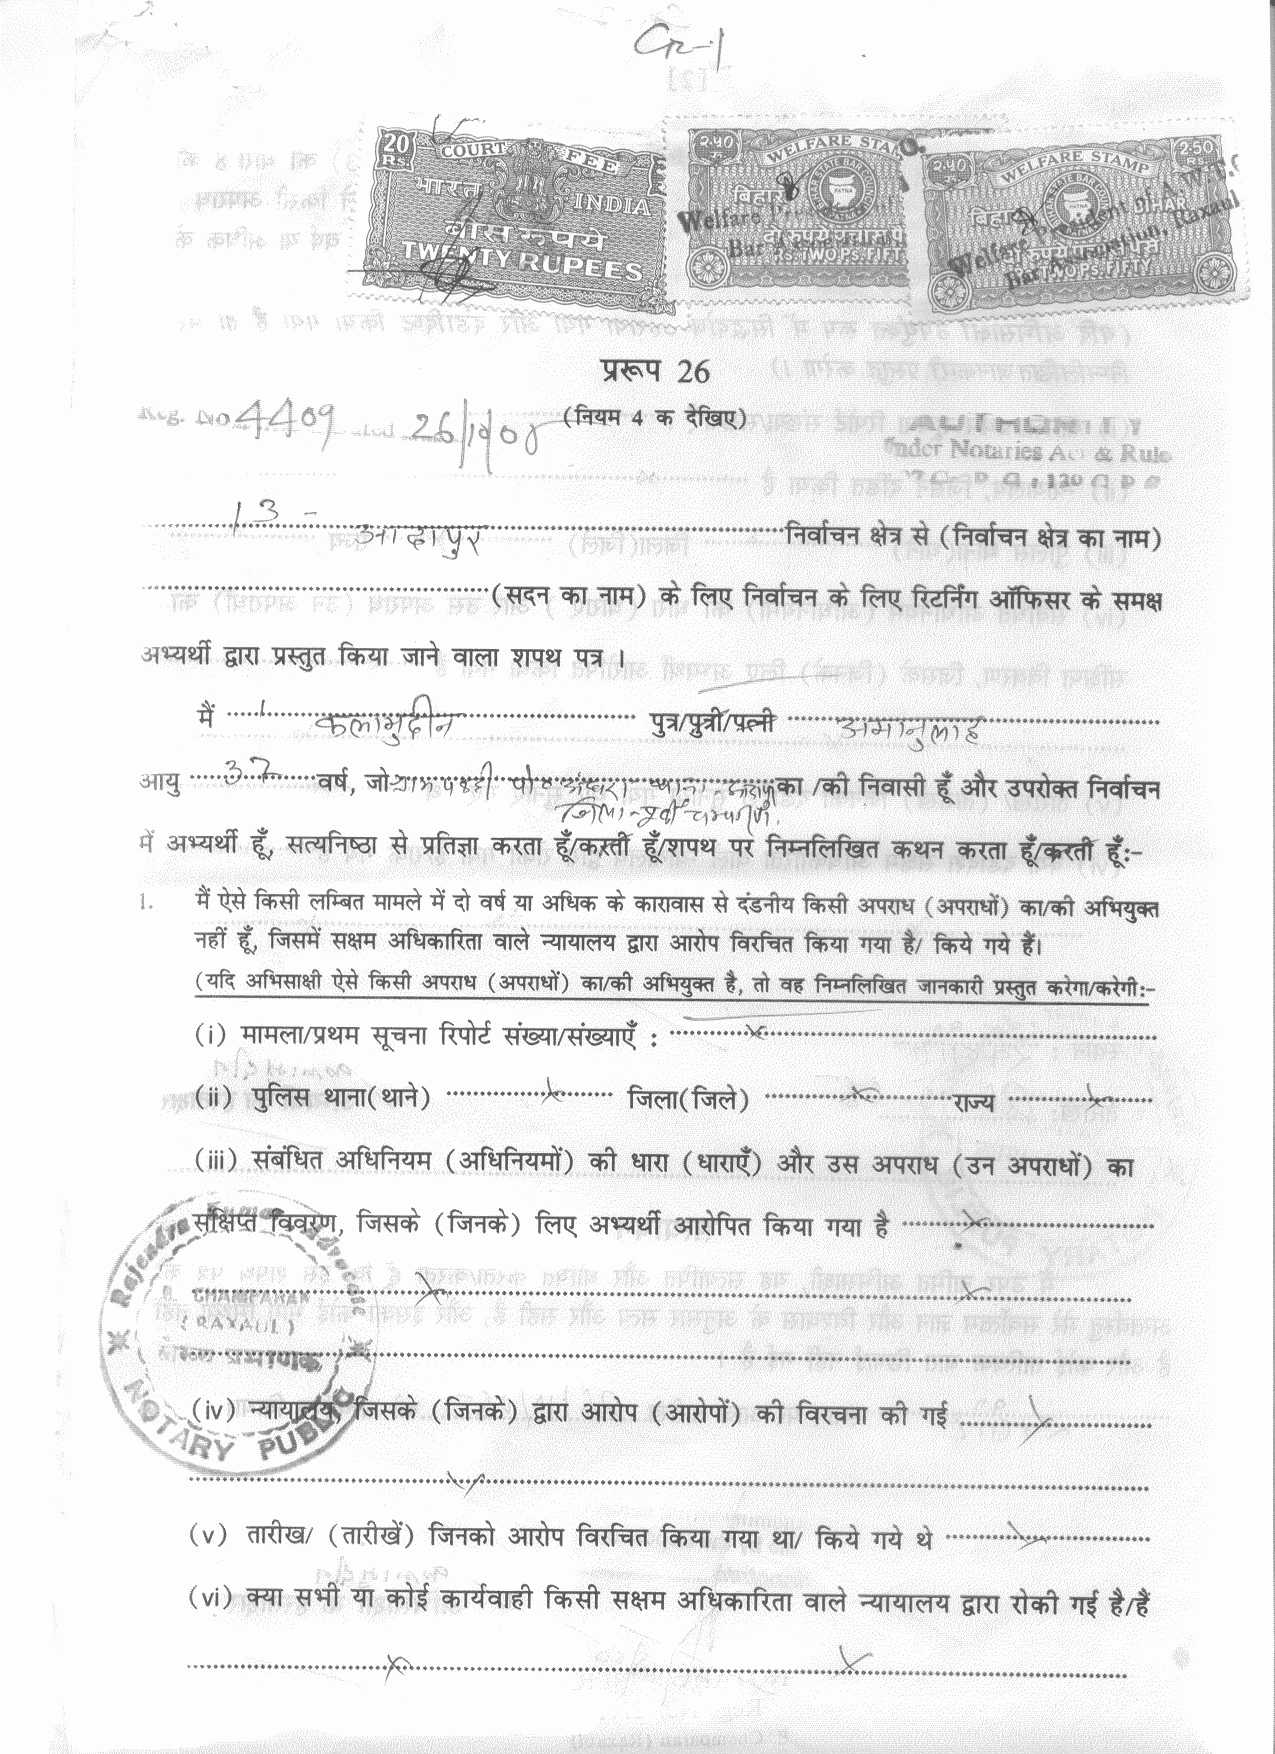 Cr-1
20 Rs. COURT FEE
भारत INDIA
बीस रूपये
TWENTY RUPEES
2.50 WELFARE STAMP
बिहार
Welfare President of
Bar Association
दो रूपये पचास पैसे
RS. TWO PS. FIFTY
2.50 WELFARE STAMP 2.50 RS.
STATE BAR COUNCIL PATNA
बिहार BIHAR
Welfare President of A.W.T.
Bar Association, Raxaul
दो रूपये पचास पैसे
TWO PS. FIFTY
प्ररूप 26
No 4409 26/10/05 (नियम 4 क देखिए)
AUTHORITY
Under Notaries Act & Rule
13 - आदापुर निर्वाचन क्षेत्र से (निर्वाचन क्षेत्र का नाम)
(सदन का नाम) के लिए निर्वाचन के लिए रिटर्निंग ऑफिसर के समक्ष
अभ्यर्थी द्वारा प्रस्तुत किया जाने वाला शपथ पत्र ।
मैं कलामुदीन पुत्र/पुत्री/पत्नी अमानुलाह
आयु 32 वर्ष, जो ग्राम का /की निवासी हूँ और उपरोक्त निर्वाचन
जिला-पूर्वी चम्पारण.
में अभ्यर्थी हूँ, सत्यनिष्ठा से प्रतिज्ञा करता हूँ/करती हूँ/शपथ पर निम्नलिखित कथन करता हूँ/करती हूँ:-
1. मैं ऐसे किसी लम्बित मामले में दो वर्ष या अधिक के कारावास से दंडनीय किसी अपराध (अपराधों) का/की अभियुक्त
नहीं हूँ, जिसमें सक्षम अधिकारिता वाले न्यायालय द्वारा आरोप विरचित किया गया है/ किये गये हैं।
(यदि अभिसाक्षी ऐसे किसी अपराध (अपराधों) का/की अभियुक्त है, तो वह निम्नलिखित जानकारी प्रस्तुत करेगा/करेगी:-
(i) मामला/प्रथम सूचना रिपोर्ट संख्या/संख्याएँ : x
(ii) पुलिस थाना(थाने) x जिला(जिले) x राज्य x
(iii) संबंधित अधिनियम (अधिनियमों) की धारा (धाराएँ) और उस अपराध (उन अपराधों) का
संक्षिप्त विवरण, जिसके (जिनके) लिए अभ्यर्थी आरोपित किया गया है x
x x
Rajendra Kumar Advocate
CHAMPARAN
(RAXAUL)
NOTARY PUBLIC
(iv) न्यायालय, जिसके (जिनके) द्वारा आरोप (आरोपों) की विरचना की गई x
x
(v) तारीख/ (तारीखें) जिनको आरोप विरचित किया गया था/ किये गये थे x
(vi) क्या सभी या कोई कार्यवाही किसी सक्षम अधिकारिता वाले न्यायालय द्वारा रोकी गई है/हैं
x x